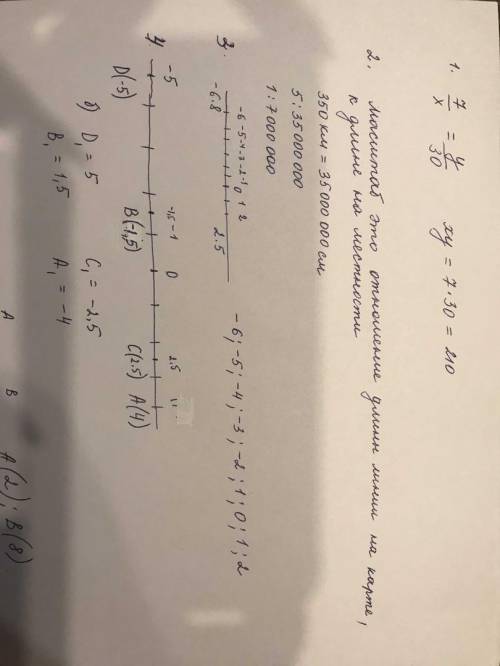 1. 7/x = y/30 xy = 7·30 = 210
2. Масштаб это отношение длины линии на карте,
к длине на местности
350 км = 35 000 000 см
5 : 35 000 000
1 : 7 000 000
3. -6 -5 -4 -3 -2 -1 0 1 2
-6.8 2.5
-6 ; -5 ; -4 ; -3 ; -2 ; 1 ; 0 ; 1 ; 2
4. -5 -1,5 -1 0 2,5
D(-5) B(-1,5) C(2.5) A(4)
б) D₁ = 5 C₁ = -2,5
B₁ = 1,5 A₁ = -4
A B A(2); B(8)